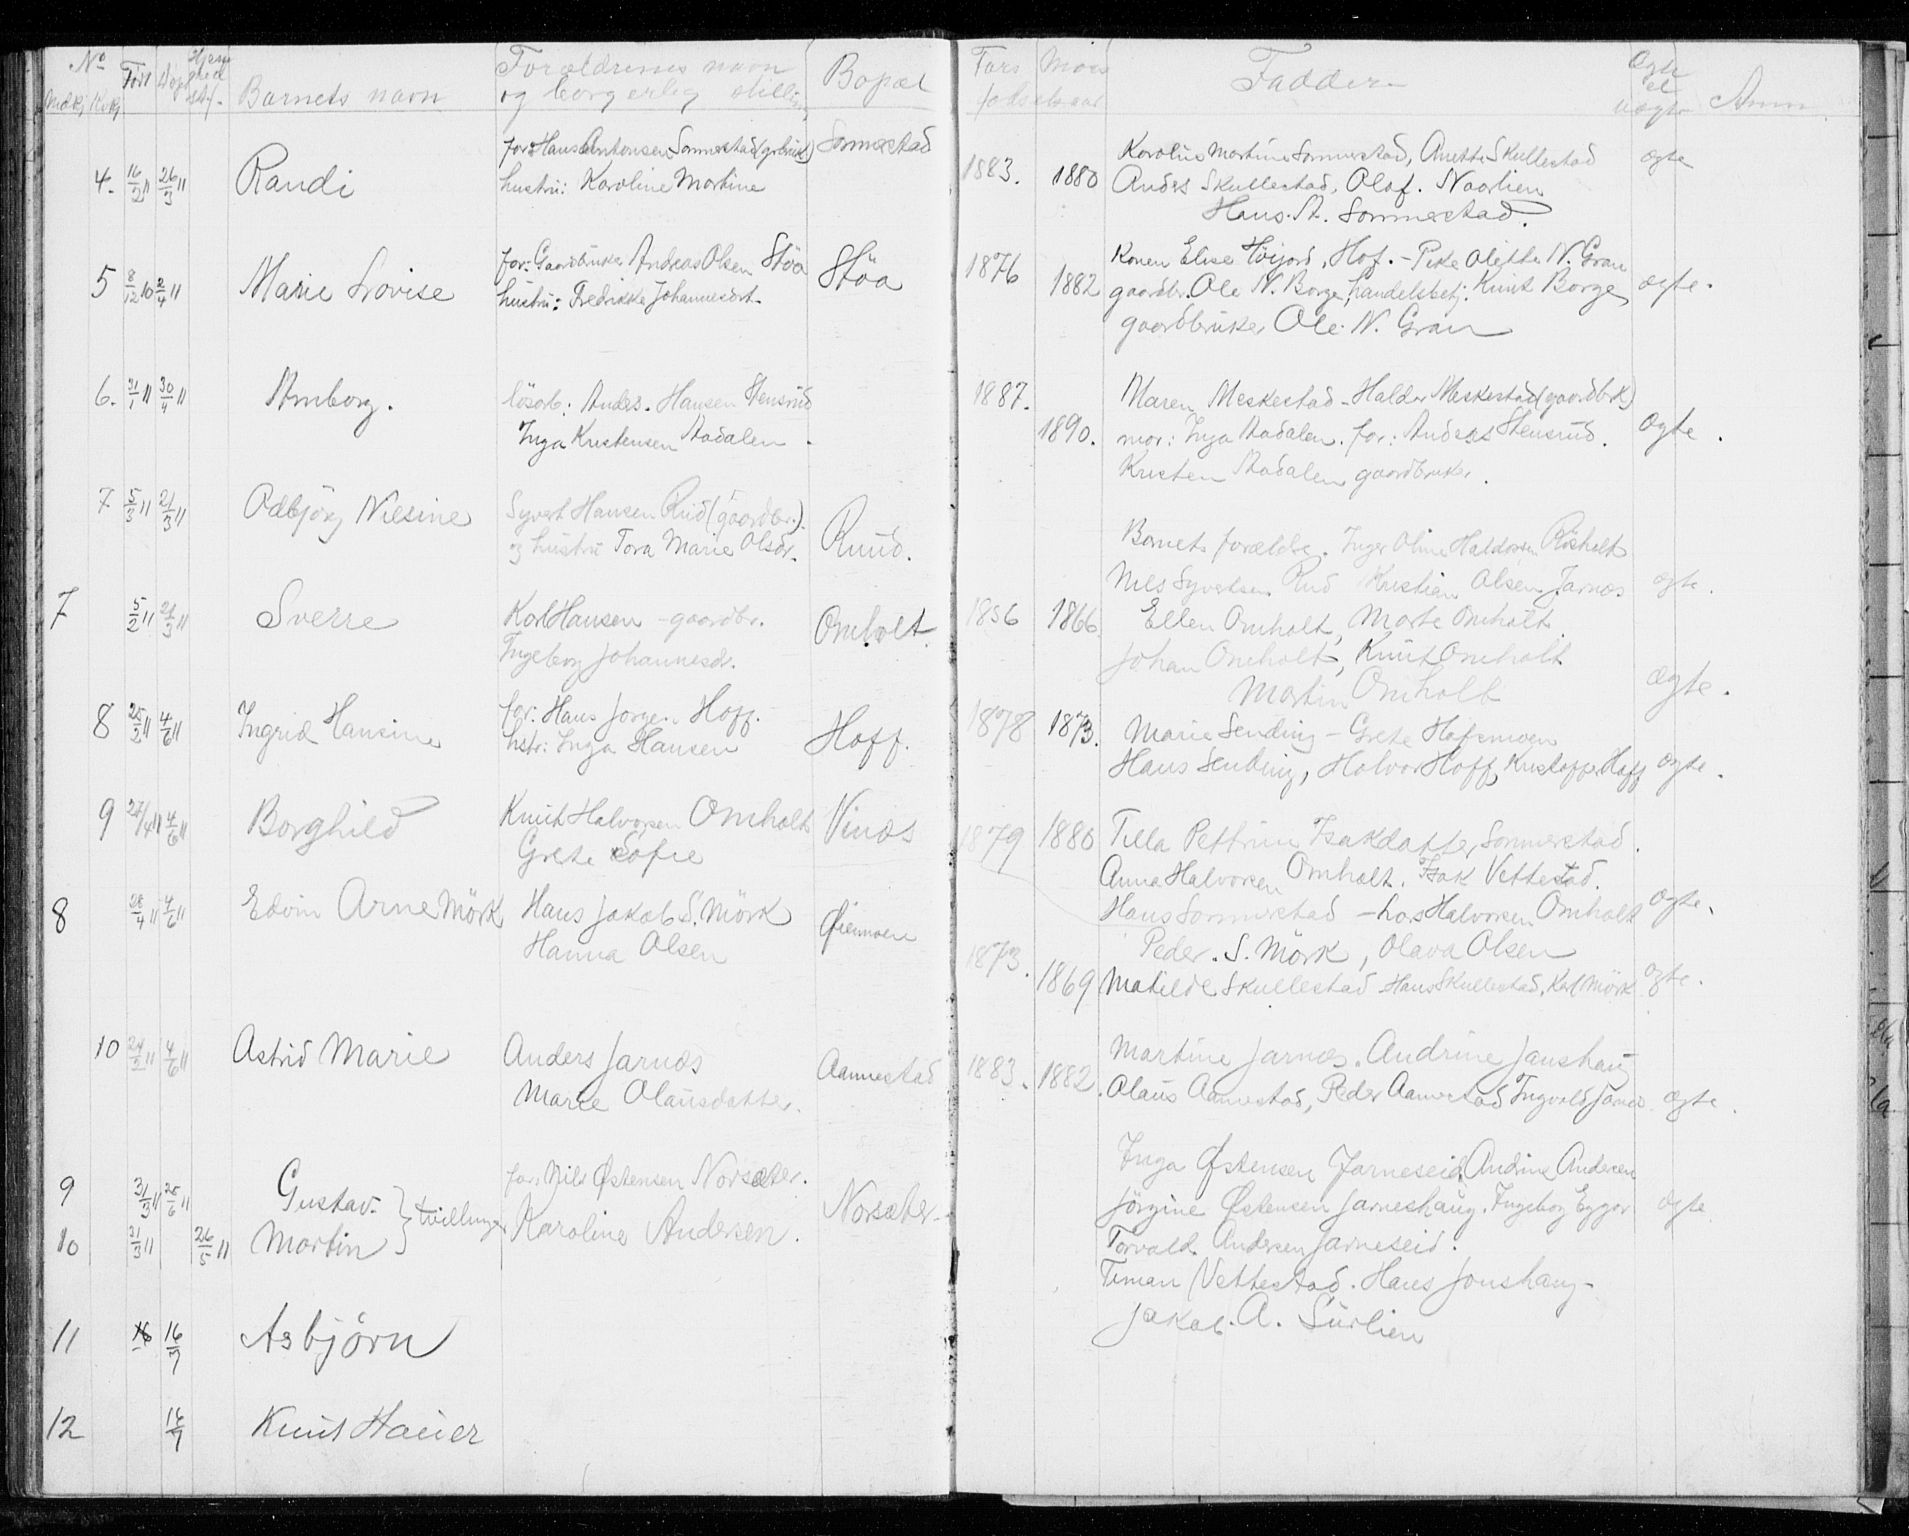 No
Mdkj Kvkj Født Døpt Barnets navn
Forældrenes navn
og borgerlig stilling
Bopæl
Fars Mors
fødselsaar
Faddere
Ægte
el
uægte
Anm
4. 16/2 11 26/3 11 Randi
far: Hans Antonsen Sommerstad (grbruk)
hustru: Karoline Martine
Sommerstad
1883. 1880
Karoline Martine Sommerstad, Anette Skullestad
Anders Skullestad, Olaf. Naarlien
Hans. A. Sommerstad.
ægte
5 8/12 10 2/4 11 Marie Lovise
far: Gaardbruker Andreas Olsen Stöa
hustru: Fredrikke Johannesdat.
Stöa
1876 1882
Konen Elise Höijord, Hof. - Pike Olette N. Gran
gaardbr. Ole N. Borge, handelsbetj. Knut Borge
gaardbruker Ole N. Gran
ægte.
6. 31/1 11 30/4 11 Arnborg.
lösarb: Anders. Hansen Stensrud
Inga Kristensen Aadalen
1887. 1890.
Maren Meskestad - Halder Meskestad (gaardbrk)
mor: Inga Aadalen. far: Anders Stensrud.
Kristen Aadalen gaardbruker.
ægte.
7 5/3 11 21/3 11 Odbjörg Nilsine
Syvert Hansen Rud (gaardbr.).
og hustru Tora Marie Olsdr.
Ruud.
Barnets forældre. Inger Oline Haldorsen Rösholt
Nils Syvertsen Rud Kristian Olsen Jarnæs
ægte.
7 5/2 11 21/3 11 Sverre
Karl Hansen - gaardbr.
Ingeborg Johannesdr.
Omholt.
1856 1866
Ellen Omholt, Marte Omholt
Johan Omholt, Knut Omholt
Martin Omholt
ægte.
8 25/2 11 4/6 11 Ingrid Hansine
far: Hans Jörgen Hoff.
hstr: Inga Hansen
Hoff.
1878 1873.
Marie Sending - Grete Hofsmoen
Hans Sending, Halvor Hoff, Kristoffer Hoff
ægte.
9 27/4 11 4/6 11 Borghild
Knut Halvorsen Omholt
Grete Sofie
Vinæs
1879 1880
Tilla Pettrine Isakdatter, Sommerstad.
Anna Halvorsen Omholt. Isak Vettestad.
Hans Sommerstad - Lars Halvorsen Omholt
ægte.
8 28/4 11 4/6 11 Edvin Arne Mörk
Hans Jakob S. Mörk
Hanna Olsen
Øienmoen
1873. 1869
Peder. S. Mörk, Olava Olsen
Matilde Skullestad Hans Skullestad, Karl Mörk
ægte.
10 24/2 11 4/6 11 Astrid Marie
Anders Jarnæs
Marie Olausdatter.
Aannestad
1883. 1882.
Martine Jarnæs. Andrine Janshaug
Olaus Aannestad, Peder Aannestad Ingvald Jarnæs
ægte.
9 31/3 11 25/6 11 Gustav
10 31/3 11 26/5 11 Martin
tvillinger
far: Nils Østensen Norsæter.
Karoline Andersen.
Norsæter
Inga Østensen Jarneseid. Andrine Andersen
Jörgine Østensen Jarneshaug. Ingeborg Eggar
Torvald Andersen Jarneseid.
Timan Vettestad. Hans Jonshaug -
Jakob. A. Surlien
ægte
11 16 16/7 Asbjørn
12 16/7 Knut Hauer